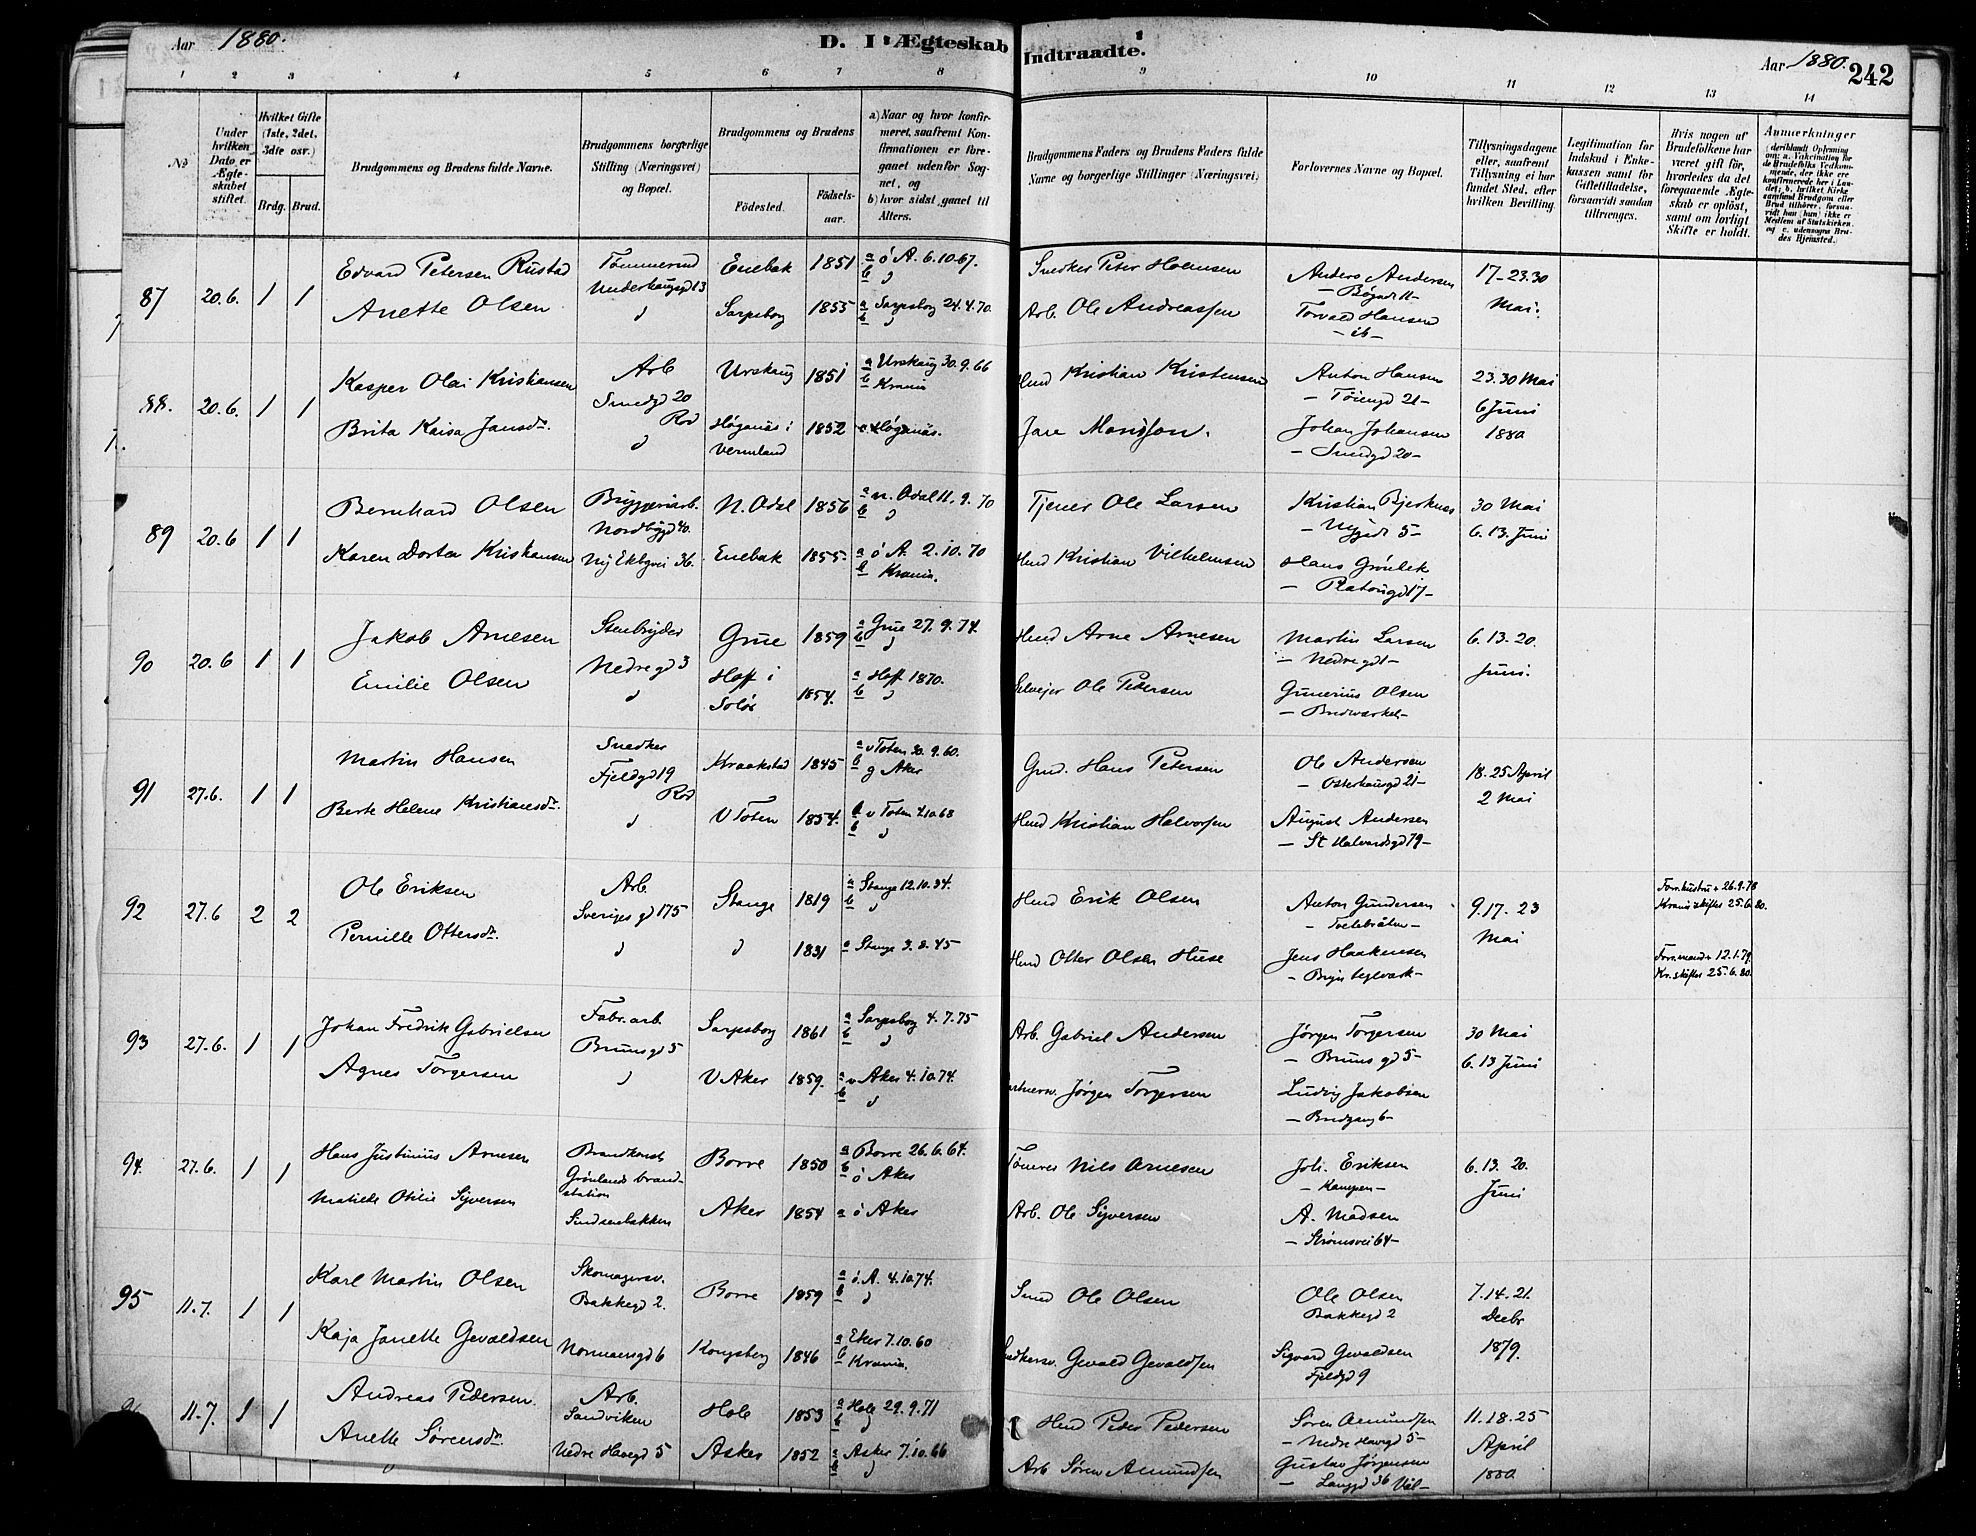 Aar 1880. D. I Ægteskab Indtraadte. Aar 1880. 242
1 2 3 4 5 6 7 8 9 10 11 12 13 14
No
Under hvilken Dato er Ægteskabet stiftet.
Hvilket Gifte (1ste, 2det, 3dte osv.)
Brdg. Brud.
Brudgommens og Brudens fulde Navne.
Brudgommens borgerlige Stilling (Næringsvei) og Bopæl.
Brudgommens og Brudens
Fødested. Fødselsaar.
a) Naar og hvor konfirmeret, saafremt Konfirmationen er foregaaet udenfor Sognet, og
b) hvor sidst gaaet til Alters.
Brudgommens Faders og Brudens Faders fulde Navne og borgerlige Stillinger (Næringsvei)
Forlovernes Navne og Bopæl.
Tillysningsdagene eller, saafremt Tillysning ei har fundet Sted, efter hvilken Bevilling.
Legitimation for Indskud i Enkekassen samt for Giftetilladelse, forsaavidt saadan tiltrænges.
Hvis nogen af Brudefolkene har været gift før, hvorledes da det foregaaende Ægteskab er opløst, samt om lovligt Skifte er holdt.
Anmærkninger
87 20.6. 1 1 Edvard Petersen Rustad Tømmermd Enebak 1851 a ö A. 6.10.67. Snedker Peter Holmsen Anders Andersen 17-23.30
Underhaugsgd 13 b " — Bøgadt 11— Mai.
Anette Olsen " Sarpsborg 1855 a Sarpsborg 24.4.70. Arb. Ole Andreassen Torvald Hansen
b " — ib —
88. 20.6. 1 1 Kasper Olai Kristiansen Arb Urskaug 1851 a Urskaug 30.9.66 Hmd Kristian Kristensen Anton Hansen 23.30 Mai
Smedgd 20 b Krania — Tøiengd 21— 6 Juni
Rod 1880
Brita Kaisa Jansdr. " Høganäs i 1852 a Høganäs. Johan Johansen
Vermland — Smedgd 20—
89 20.6 1 1 Bernhard Olsen Bryggeriarb. N. Odal 1856 a n. Odal 11.9.70 Tjener Ole Larsen Kristian Bjerknes 30 Mai
Nordbygd 40. b " — Nygadt 5— 6.13. Juni
Karen Dortea Kristiansen Ny Ekbgvei 36. Enebak 1855. a ö A. 2.10.70 Hmd Kristian Vilhelmsen Hans Grönbek
b Krania. — Platougd 17—
90 20.6 1 1 Jakob Arnesen Stenbryder Grue 1859 a Grue 27.9.74. Hmd Arne Arnesen Martin Larsen 6.13.20.
Nedregd 3 b " — Nedregd 1— Juni.
Emilie Olsen " Hoff i Solör 1854. a Hoff 1870. Selveier Ole Pedersen Gunerius Olsen
b "
91 27.6. 1 1 Martin Hansen Snedker Kraakstad 1845 a v Toten 30.9.60. Gmd. Hans Petersen Ole Andersen 18.25 April
Fjeldgd 19 b g Aker — Osterhausgd 21— 2 Mai
Rod
Berte Helene Kristiansdr. " V Toten 1854. a v Toten 4.10.68 Hmd Kristian Halvorsen August Andersen
b " — St Halvardsgd 79—
92 27.6 2 2 Ole Eriksen Arb. Stange 1819 a Stange 12.10.34. Hmd Erik Olsen Anton Gundersen 9.17.23 Forr. hustru + 26.9.78
Sveriges gd 175 b " Mai Krania skiftet 25.6.80.
Pernille Ottersdr. " " 1831 a Stange 3.8.45 Hmd Otter Olsen Huse Jens Haakensen Forr. mand + 12.1.79
— Bryns teglverk— Kr. skiftet 25.6.80.
93 27.6. 1 1 Johan Fredrik Gabrielsen Fabr. arb. Sarpsborg 1861 a Sarpsborg 4.7.75 Arb. Gabriel Andersen Jørgen Torgersen 30 Mai
Brunsgd 5 b " — Bruns gd 5— 6.13 Juni
Agnes Torgersen " V Aker 1859. a v Aker 4.10.74. Jørgen Torgersen Ludvig Jakobsen
b " — Bredgang 6—
94. 27.6. 1 1 Hans Justinius Arnesen Brandkonst. Borre 1850 a Borre 26.6.64. Tömrer Nils Arnesen Joh. Eriksen 6.13.20.
Grönlands brandstation b ö Aker — Kampen— Juni
Matilde Otilie Syversen Sindsenbakken Aker 1854 a ö Aker Arb. Ole Syversen A. Madsen
— Strömsvei 64—
95 11.7. 1 1 Karl Martin Olsen Skomagersv. Borre 1859 a ö. A. 4.10.74. Smed Ole Olsen Ole Olsen 7.14.21.
Bakkegd 2. b " Bakkegd 2 Decbr
Kaja Janette Gevaldsen Normansgd 6 Kongsberg 1846 a Eker 7.10.60 Snedkersv. Gevald Gevaldsen Sigvard Gevaldsen 1879.
b Krania. Fjeldgd 9
11.7. 1 1 Andreas Pedersen. Arb. Hole 1853 a Hole 29.9.71 Hmd Peder Pedersen Sören Amundsen 11.18.25
Sandviken b " — Nedre Havegd 5— April
Anette Sörensdr Nedre Havegd 5 Asker 1852 a Asker 7.10.66 Arb Sören Amundsen Gustav Jörgensen 1880
b " — Langgd 36 Vål—